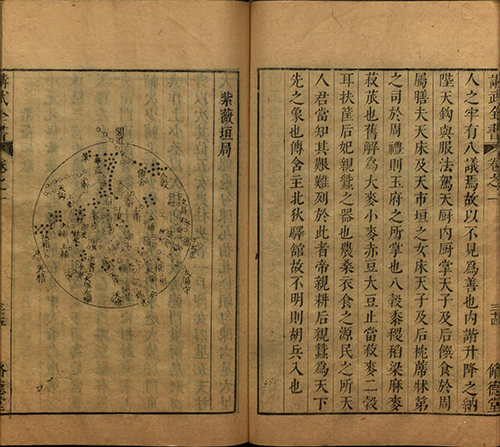 講武全書 卷之一
脩德堂
人之牢有八議焉故以不見爲善也內諧升降之納
陛天鈎與服法駕天厨內厨掌天子及后饌食於周
屬膳夫天床及天市垣之女床天子及后枕蓆牀第
之司於周禮則玉府之所掌也八穀黍稷稻梁麻麥
菽菰也舊解爲大麥小麥赤豆大豆止當菽麥二穀
耳扶筐后妃親蠶之器也農桑衣食之源民之所天
人君當知其艱難列於此者帝親耕后親蠶爲天下
先之象也傳舍主北秋驛舘故不明則胡兵入也
紫薇垣局
閣道
太陽守
天棓
講武全書 卷之一
脩德堂